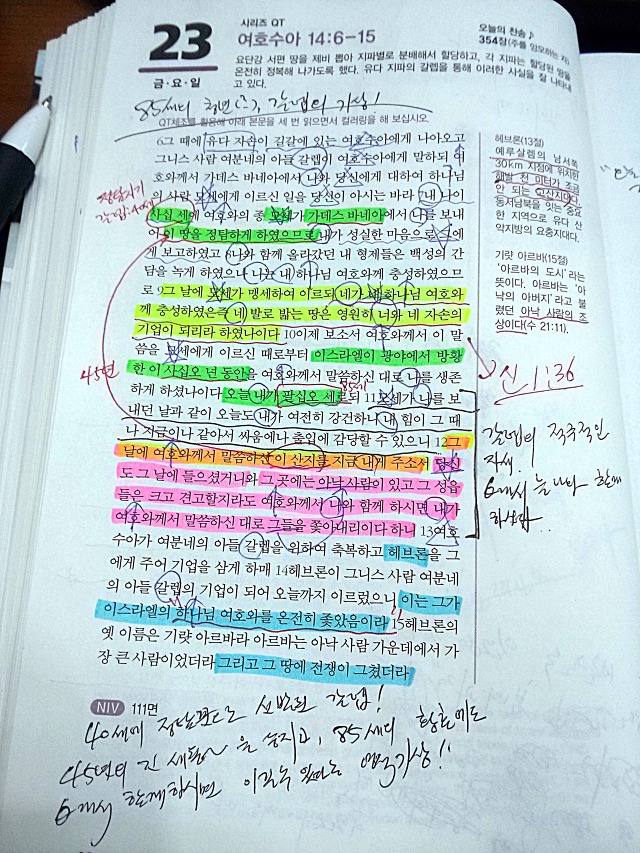 23
금·요·일
시리즈 QT
여호수아 14:6-15
오늘의 찬송♪
354장(주를 앙모하는 자)
요단강 서편 땅을 제비 뽑아 지파별로 분배해서 할당하고, 각 지파는 할당된 땅을
온전히 정복해 나가도록 했다. 유다 지파의 갈렙을 통해 이러한 사실을 잘 나타내
고 있다.
85세의 청년(?), 갈렙의 기상!
QT제조를 활용해 아래 본문을 세 번 읽으면서 컬러링을 해 보십시오.
6그 때에 유다 자손이 길갈에 있는 여호수아에게 나아오고
그니스 사람 여분네의 아들 갈렙이 여호수아에게 말하되 여
호와께서 가데스 바네아에서 나와 당신에게 대하여 하나님
의 사람 모세에게 이르신 일을 당신이 아시는 바라 7내 나이
사십 세에 여호와의 종 모세가 가데스 바네아에서 나를 보내
어 이 땅을 정탐하게 하였으므로 내가 성실한 마음으로 그에
게 보고하였고 8나와 함께 올라갔던 내 형제들은 백성의 간
담을 녹게 하였으나 나는 내 하나님 여호와께 충성하였으므
로 9그 날에 모세가 맹세하여 이르되 네가 내 하나님 여호와
께 충성하였은즉 네 발로 밟는 땅은 영원히 너와 네 자손의
기업이 되리라 하였나이다 10이제 보소서 여호와께서 이 말
씀을 모세에게 이르신 때로부터 이스라엘이 광야에서 방황
한 이 사십오 년 동안을 여호와께서 말씀하신 대로 나를 생존
하게 하셨나이다 오늘 내가 팔십오 세로되 11모세가 나를 보
내던 날과 같이 오늘도 내가 여전히 강건하니 내 힘이 그 때
나 지금이나 같아서 싸움에나 출입에 감당할 수 있으니 12그
날에 여호와께서 말씀하신 이 산지를 지금 내게 주소서 당신
도 그 날에 들으셨거니와 그 곳에는 아낙 사람이 있고 그 성읍
들은 크고 견고할지라도 여호와께서 나와 함께 하시면 내가
여호와께서 말씀하신 대로 그들을 쫓아내리이다 하니 13여호
수아가 여분네의 아들 갈렙을 위하여 축복하고 헤브론을 그
에게 주어 기업을 삼게 하매 14헤브론이 그니스 사람 여분네
의 아들 갈렙의 기업이 되어 오늘까지 이르렀으니 이는 그가
이스라엘의 하나님 여호와를 온전히 좇았음이라 15헤브론의
옛 이름은 기럇 아르바라 아르바는 아낙 사람 가운데에서 가
장 큰 사람이었더라 그리고 그 땅에 전쟁이 그쳤더라
헤브론(13절)
예루살렘의 남서쪽
30km 지점에 위치한
해발 천 미터가 조금
안 되는 고산지대다.
동서남북을 잇는 중요
한 지역으로 유다 산
악지방의 요충지대다.
기럇 아르바(15절)
'아르바의 도시'라는
뜻이다. 아르바는 '아
낙의 아버지'라고 불
렸던 아낙 사람의 조
상이다(수 21:11).
45년
85세
신 1:36
갈렙의 적극적인
자세.
NIV 111면
40세에 정탐꾼으로 선발된 갈렙!
45년의 긴 세월을 85세의 황혼에도
함께하시면 이길 수 있다는